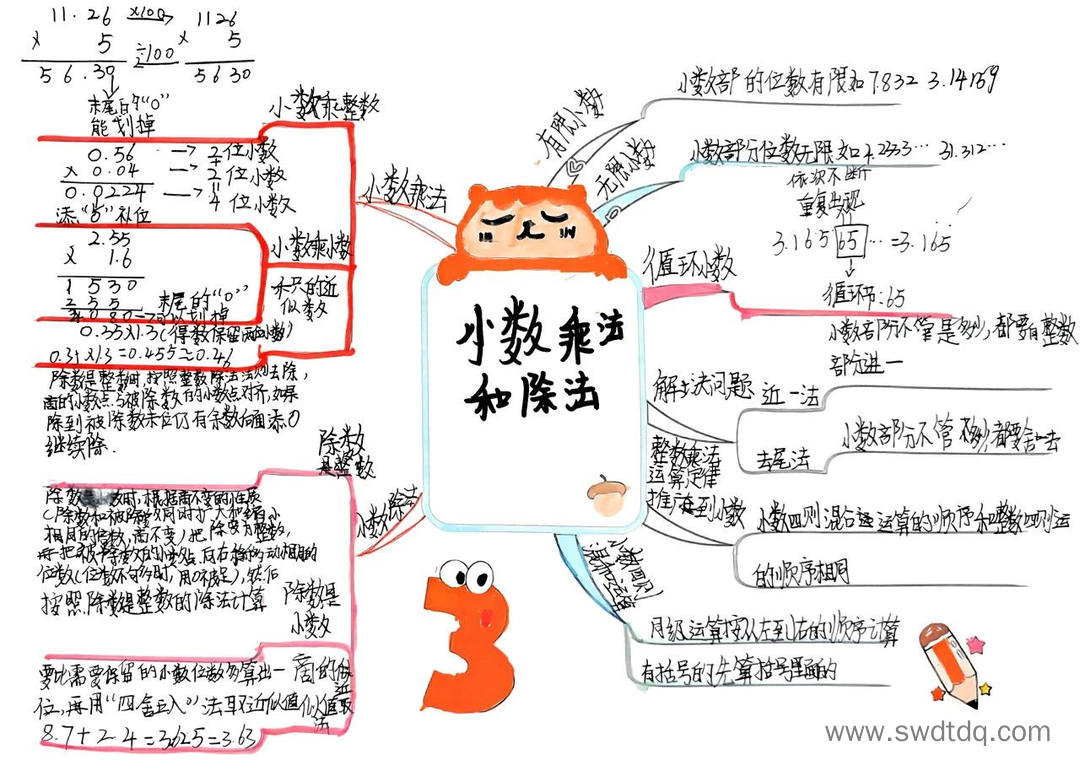 小数乘法
和除法
小数乘法
小数乘整数
11.26 ×100 1126
× 5 ÷100 × 5
56.30 5630
末尾的“0”
能划掉
小数乘小数
0.56 → 2位小数
× 0.04 → 2位小数
0.0224 → 4位小数
添“0”补位
2.55
× 1.6
1530
255
末尾的“0”
可以划掉
似数
0.35×1.3(得数保留两位小数)
0.35×1.3=0.455≈0.46
小数除法
除数
是整数
除数是整数时,按照整数除法法则去除,
商的小数点与被除数的小数点对齐,如果
除到被除数末位仍有余数后面添0
继续除.
除数是
小数
相同的倍数,商不变)把除数变为整数,
位数(位数不够时,用0补足),然后
按照除数是整数的除法计算
商的近
似值取
法
要比需要保留的小数位数多算出一
位,再用“四舍五入”法取近似值
8.7÷2.4=3.625=3.63
有限小数
小数部的位数有限如7.832 3.14169
无限小数
小数部分位数无限如4.2333… 31.312…
循环小数
依次不断
重复出现
3.16565…=3.165
循环节:65
解决问题
近一法
小数部分不管是多少,都要向整数
部分进一
去尾法
小数部分不管多少都要舍去
整数乘法
运算定律
推广到小数
小数四则混合运算的顺序和整数四则运
的顺序相同
小数四则
混合运算
同级运算按从左到右的顺序计算
有括号的先算括号里面的
3
www.swdtdq.com